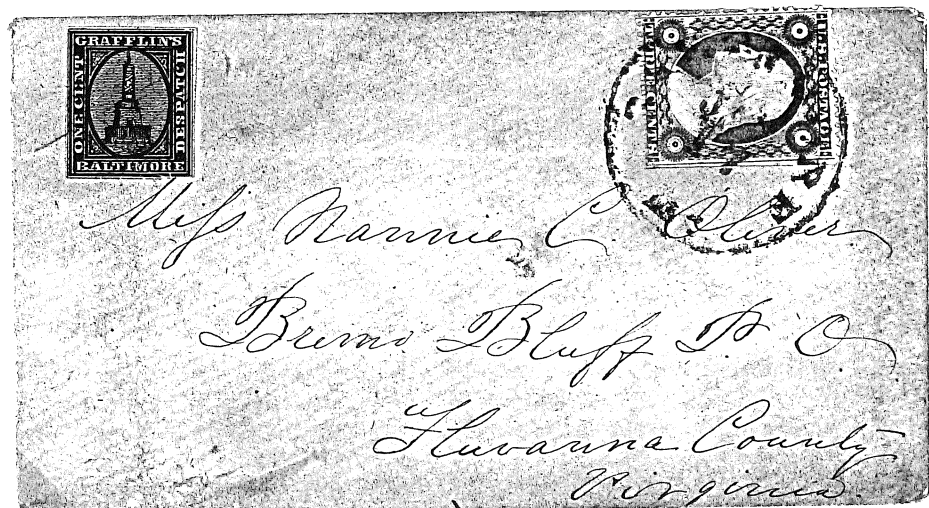 GRAFFLIN'S
ONE CENT
DESPATCH
BALTIMORE
U.S. POSTAGE
THREE CENTS
Miss Nannie C. Oliver
Bremo Bluff P. O
Fluvanna County
Virginia.